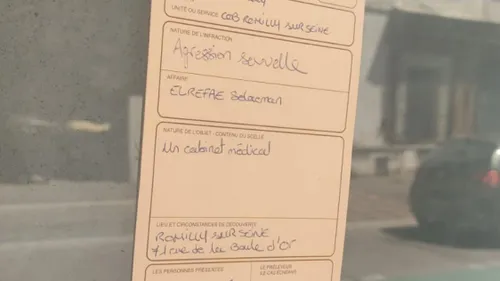 UNITÉ OU SERVICE COB ROMILLY SUR SEINE
NATURE DE L'INFRACTION
Agression sexuelle
AFFAIRE
ELREFAE
NATURE DE L'OBJET - CONTENU DU SCELLÉ
Un cabinet médical
LIEU ET CIRCONSTANCES DE DÉCOUVERTE
ROMILLY SUR SEINE
71 rue de la Boule d'Or
LES PERSONNES PRÉSENTES
LE PRÉLEVEUR